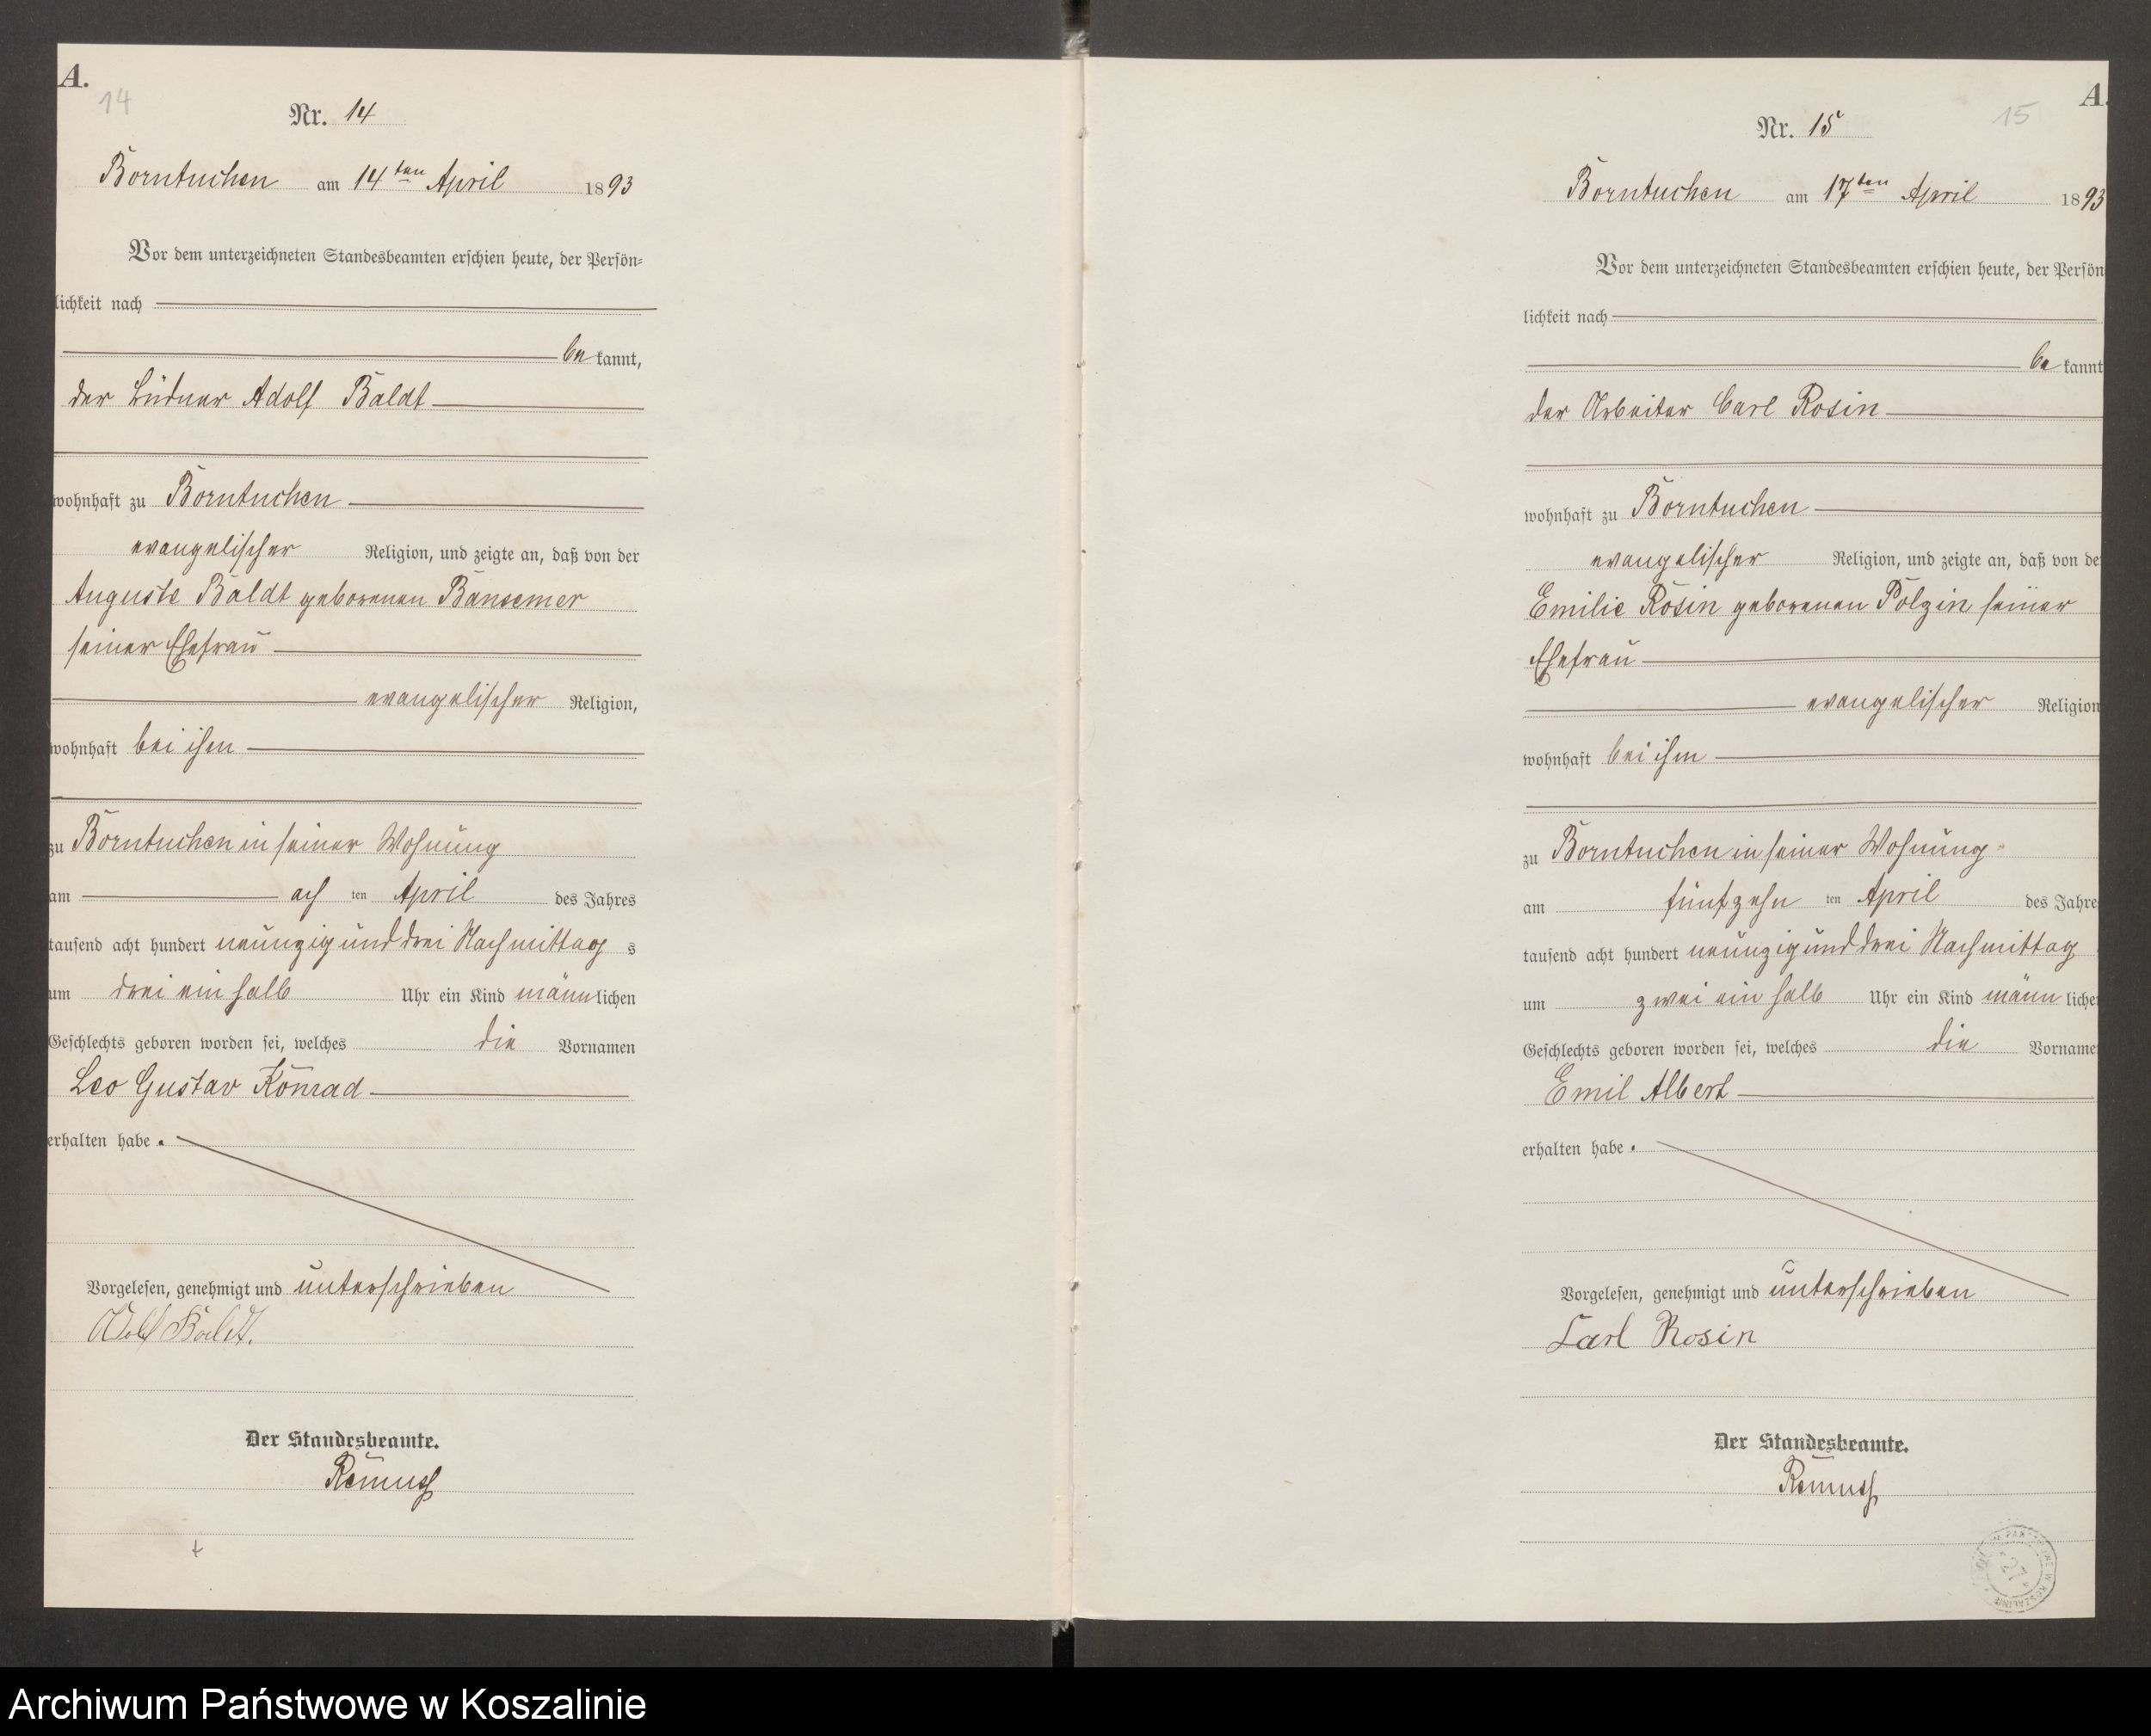 A.
14
Nr. 14
Borntuchen am 14ten April 1893
Vor dem unterzeichneten Standesbeamten erschien heute, der Persön-
lichkeit nach
be kannt,
der Büdner Adolf Baldt
wohnhaft zu Borntuchen
evangelischer Religion, und zeigte an, daß von der
Auguste Baldt geborenen Bansemer
seiner Ehefrau
evangelischer Religion,
wohnhaft bei ihm
zu Borntuchen in seiner Wohnung
am ach ten April des Jahres
tausend acht hundert neunzig und drei Nachmittag s
um drei ein halb Uhr ein Kind männ lichen
Geschlechts geboren worden sei, welches die Vornamen
Leo Gustav Konrad
erhalten habe.
Vorgelesen, genehmigt und unterschrieben
Adolf Baldt.
Der Standesbeamte.
Remus
A.
15
Nr. 15
Borntuchen am 17ten April 1893
Vor dem unterzeichneten Standesbeamten erschien heute, der Persön
lichkeit nach
be kannt
der Arbeiter Carl Rosin
wohnhaft zu Borntuchen
evangelischer Religion, und zeigte an, daß von de
Emilie Rosin geborenen Polzin seiner
Ehefrau
evangelischer Religion
wohnhaft bei ihm
zu Borntuchen in seiner Wohnung
am fünfzehn ten April des Jahre
tausend acht hundert neunzig und drei Nachmittag
um zwei ein halb Uhr ein Kind männ liche
Geschlechts geboren worden sei, welches die Vorname
Emil Albert
erhalten habe.
Vorgelesen, genehmigt und unterschrieben
Carl Rosin
Der Standesbeamte.
Remus
Archiwum Państwowe w Koszalinie